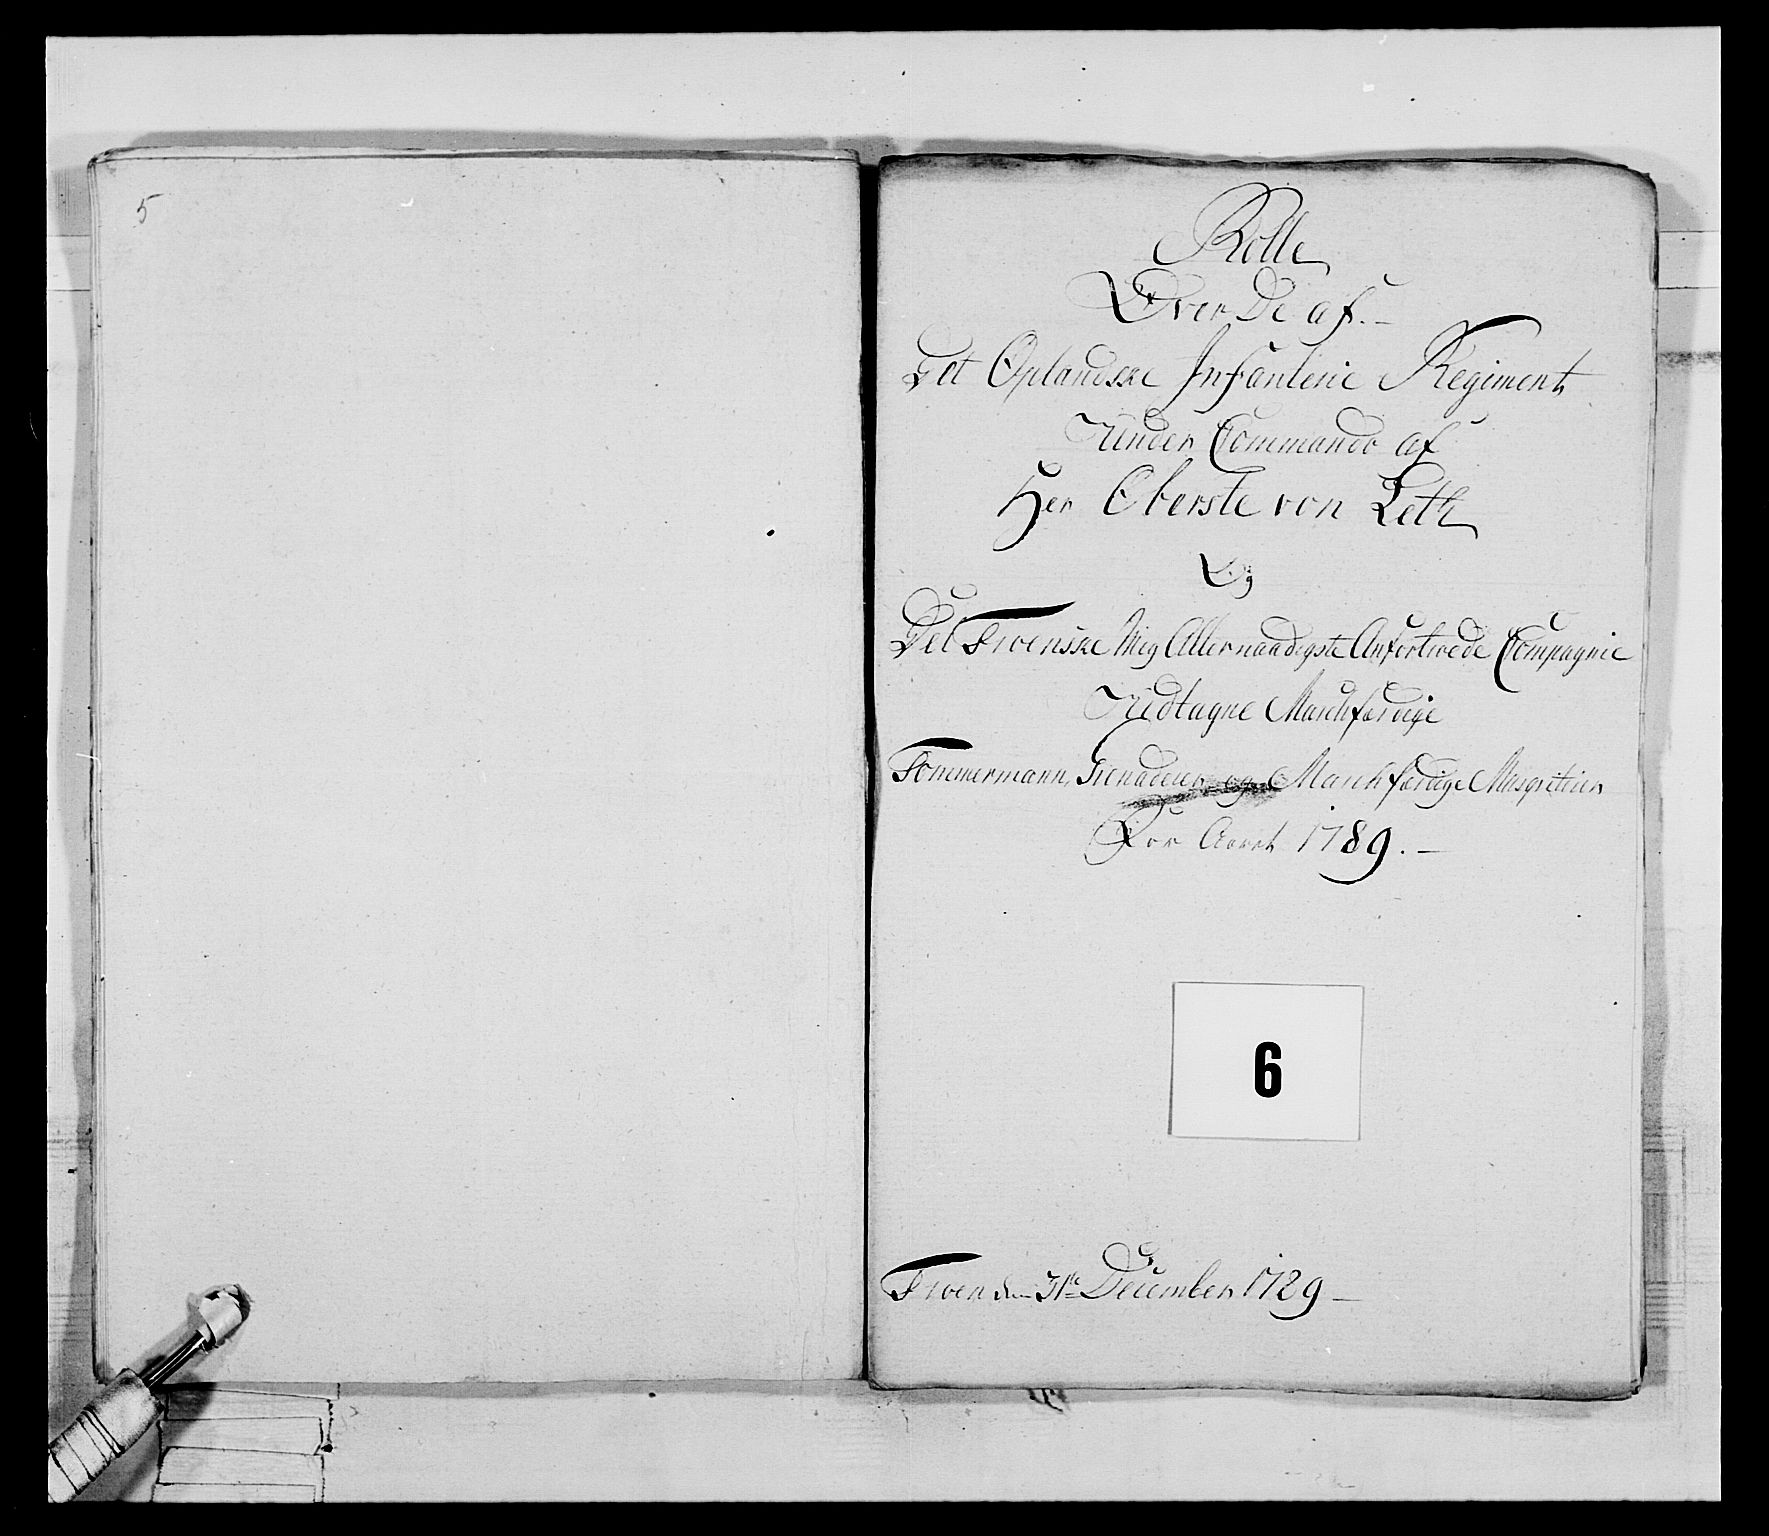 5
Rolle
Over De af. –
Det Oplandske Infanterie Regiment
Under Commando af
Her Oberste von Leth
Og
Det Troenske Mig Allernaadigste Anfortroede Compagnie
Udtagne Marchfærdige
Tømmermænn, Grenaderer og Marchfærdige Musqvetierer
For Aaret 1789. –
6
Troen den 31te December 1789 –